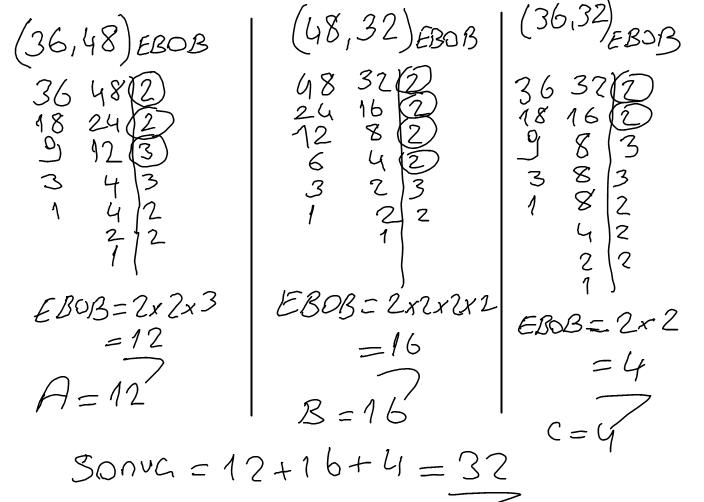 (36,48)EBOB
36 48 2
18 24 2
9 12 3
3 4 3
1 4 2
2 2
1
EBOB=2x2x3
=12
A=12
(48,32)EBOB
48 32 2
24 16 2
12 8 2
6 4 2
3 2 3
1 2 2
1
EBOB=2x2x2x2
=16
B=16
(36,32)EBOB
36 32 2
18 16 2
9 8 3
3 8 3
1 8 2
4 2
2 2
1
EBOB=2x2
=4
C=4
Sonuç=12+16+4=32